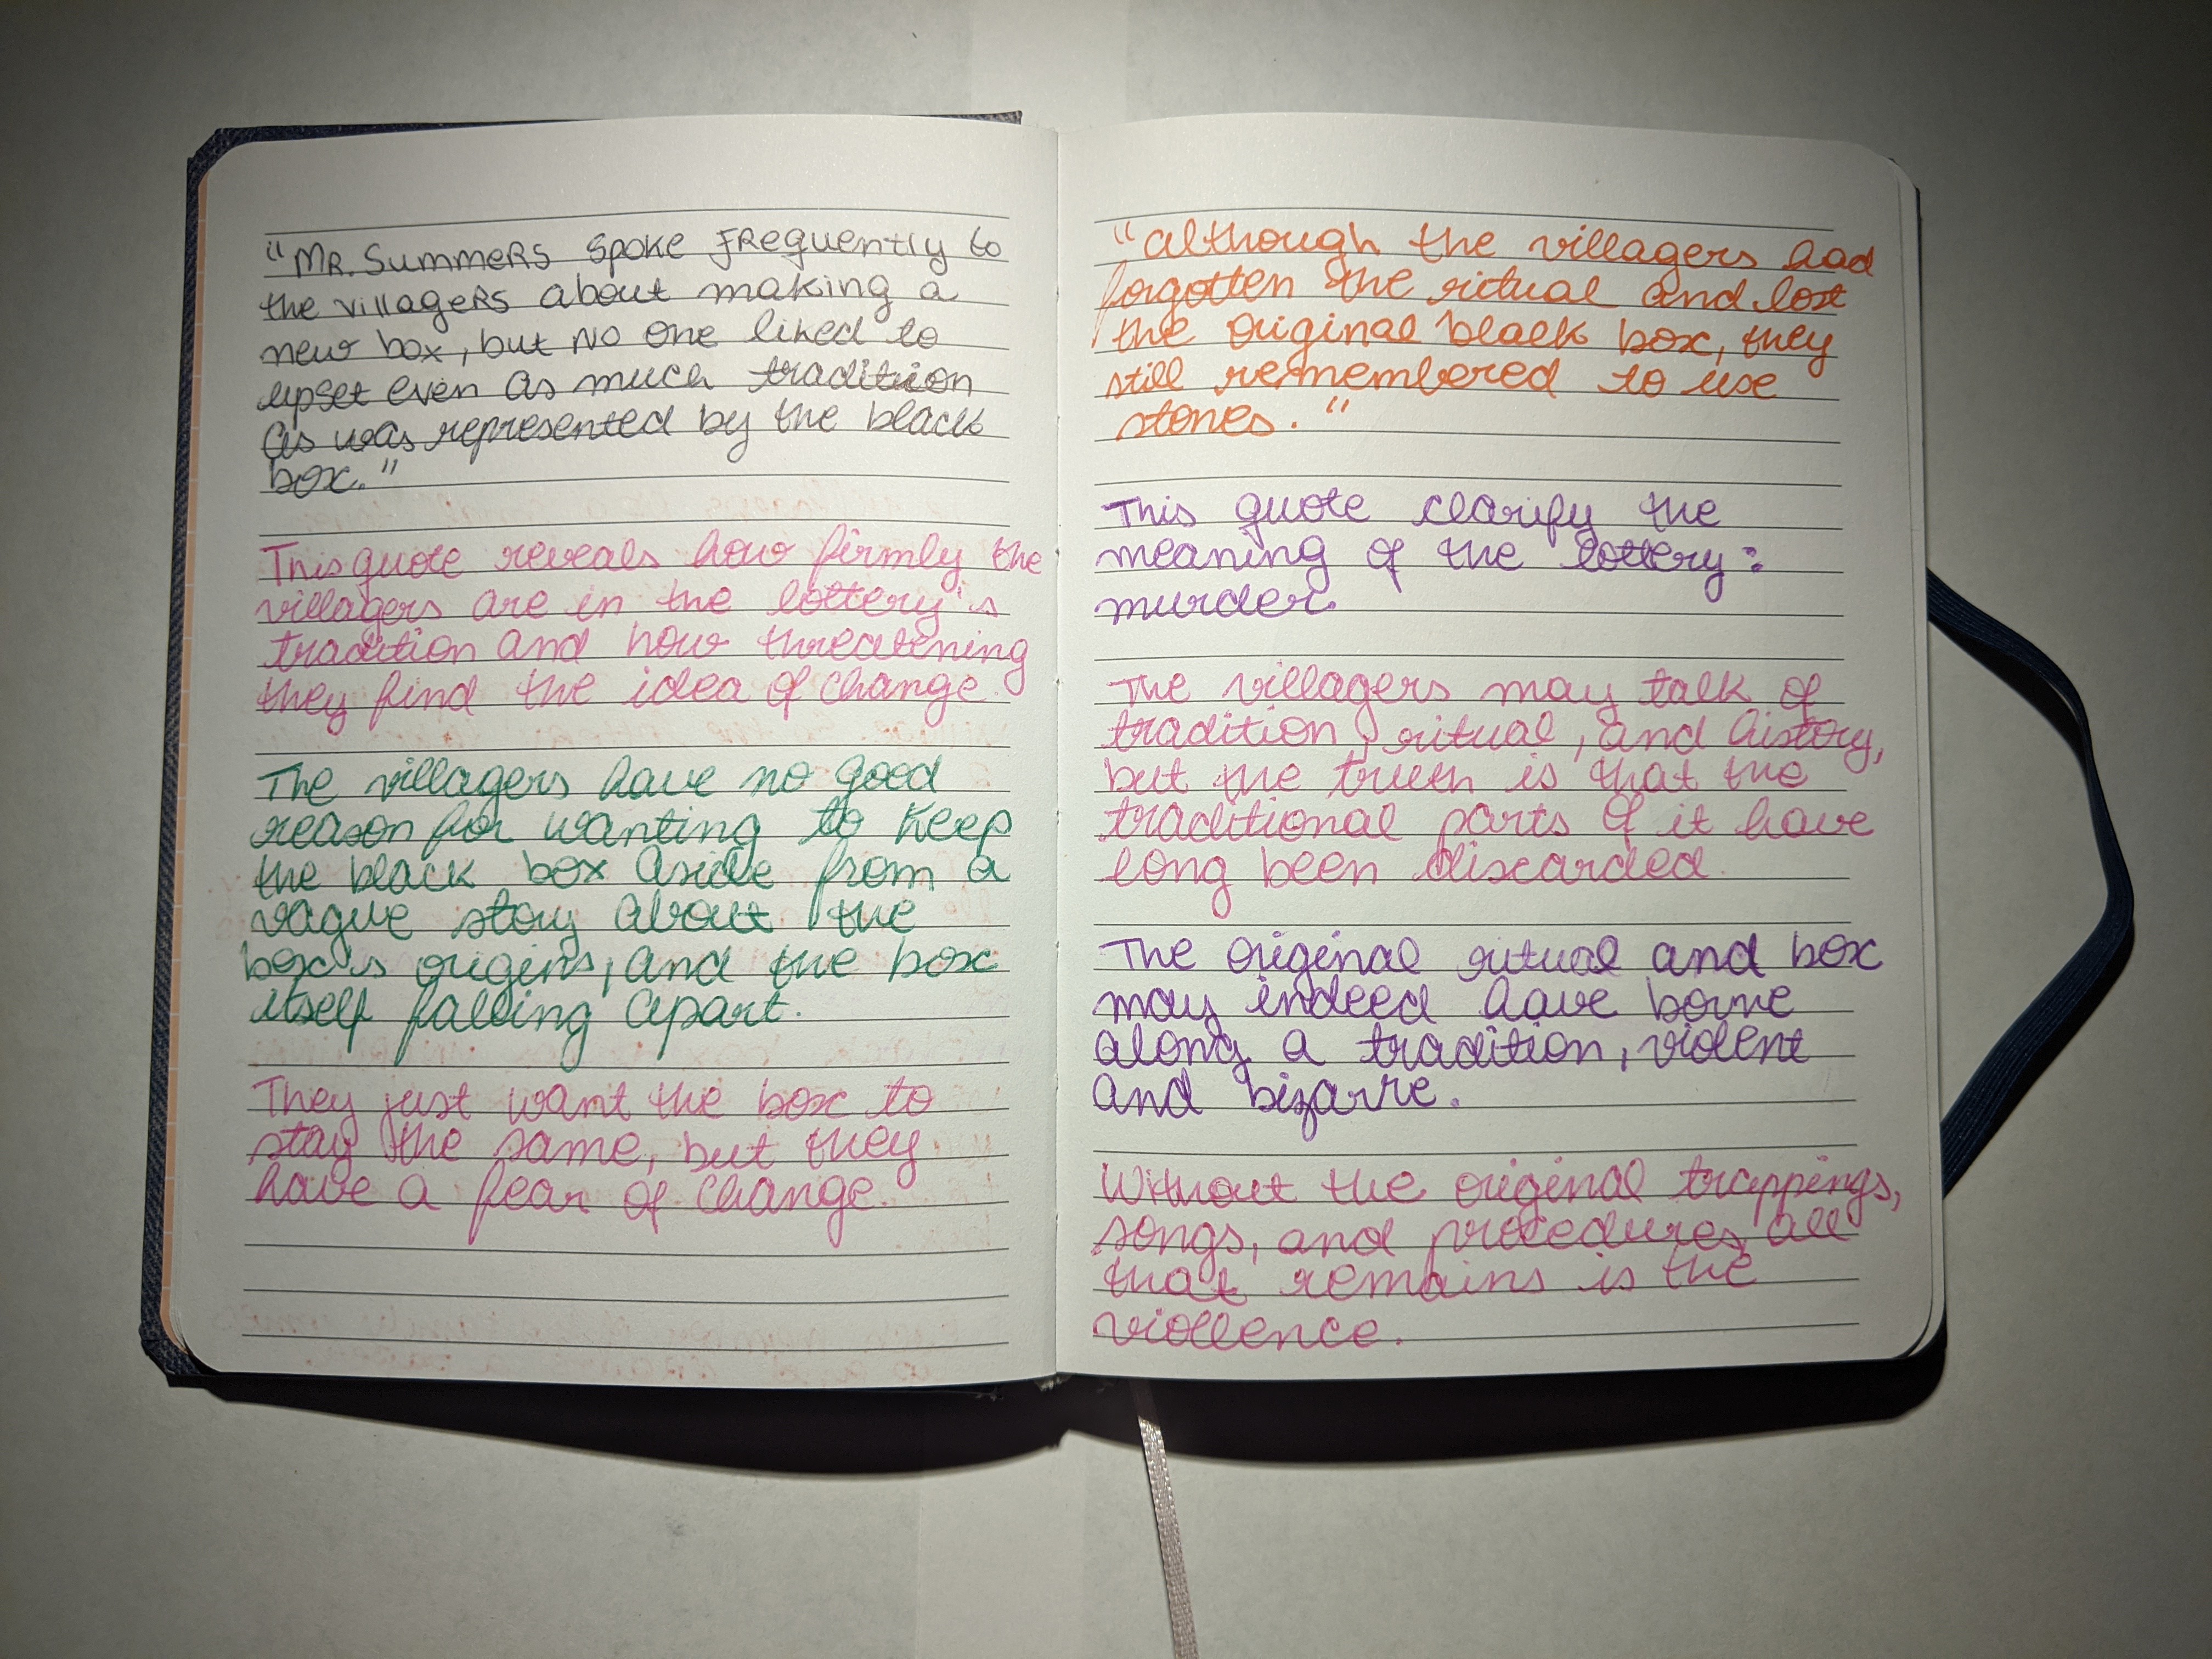 "MR. SummeRS Spoke FRequently to
the villageRS about making a
new box, but No one liked to
upset even as much tradition
as was represented by the black
box."
This quote reveals how firmly the
villagers are in the lottery's
tradition and how threatening
they find the idea of change.
The villagers have no good
reason for wanting to keep
the black box aside from a
vague story about the
box's origins, and the box
itself falling apart.
They just want the box to
stay the same, but they
have a fear of change.
"although the villagers had
forgotten the ritual and lost
the original black box, they
still remembered to use
stones."
This quote clarify the
meaning of the lottery:
murder.
The villagers may talk of
tradition, ritual, and history,
but the truth is that the
traditional parts of it have
long been discarded.
The original ritual and box
may indeed have borne
along a tradition, violent
and bizarre.
Without the original trappings,
songs, and procedures, all
that remains is the
viollence.